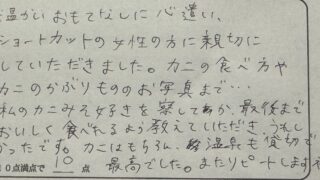 温かいおもてなしに心遣い、
ショートカットの女性の方に親切に
していただきました。カニの食べ方や
カニのかぶりもののお写真まで…
私のカニみそ好きを察してか、最後まで
おいしく食べれるよう教えていただき、うれし
かったです。カニはもちろん、温泉も貸切で
10点満点で 10 点 最高でした。またリピートします